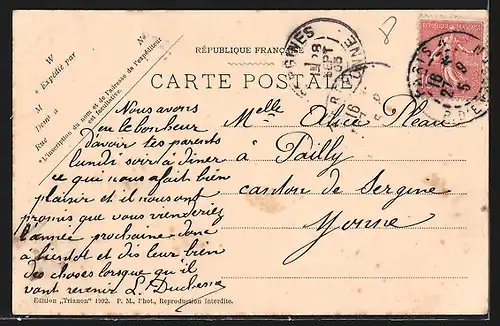 RÉPUBLIQUE FRANÇAISE
CARTE POSTALE
Nº
W
Expédié par
M
Demt à
Rue
"L'inscription du nom et de l'adresse de l'expéditeur
est facultative.
SERGINES
28
SEPT
05
YONNE
PARIS
Nous avons
eu le bonheur
d'avoir tes parents
lundi soir à diner à
ce qui nous a fait bien
plaisir et il nous ont
promis que vous viendriez
l'année prochaine donc
à bientot et dis leur bien
des choses lorsque qu'il
vont revenir L. Duchesne
Melle Alice Pleau
Pailly
canton de Sergine
Yonne
Edition "Trianon" 1992. P. M., Phot., Reproduction interdite.